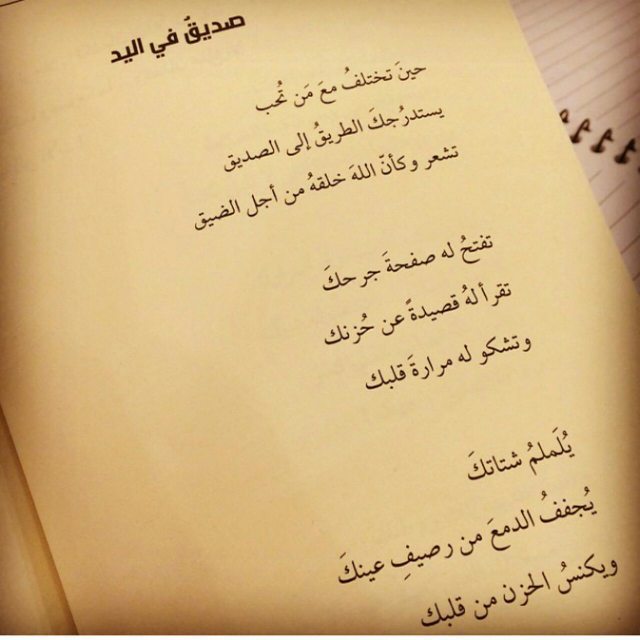 صديقٌ في اليد
حينَ تختلفُ معَ مَن تُحب
يستدرُجكَ الطريقُ إلى الصديق
تشعر وكأنّ اللهَ خلقهُ من أجل الضيق
تفتحُ له صفحةَ جرحكَ
تقرأ لهُ قصيدةً عن حُزنك
وتشكو له مرارةَ قلبك
يُلَملمُ شتاتكَ
يُجففُ الدمعَ من رصيفِ عينكَ
ويكنسُ الحزن من قلبك